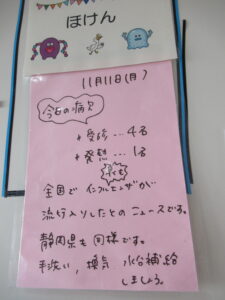 ほけん
11月11日(月)
今日の病欠
+受診…4名
+発熱…1名
全国でインフルエンザが
流行入りしたとのニュースです。
静岡県も同様です。
手洗い、換気 水分補給
しましょう。